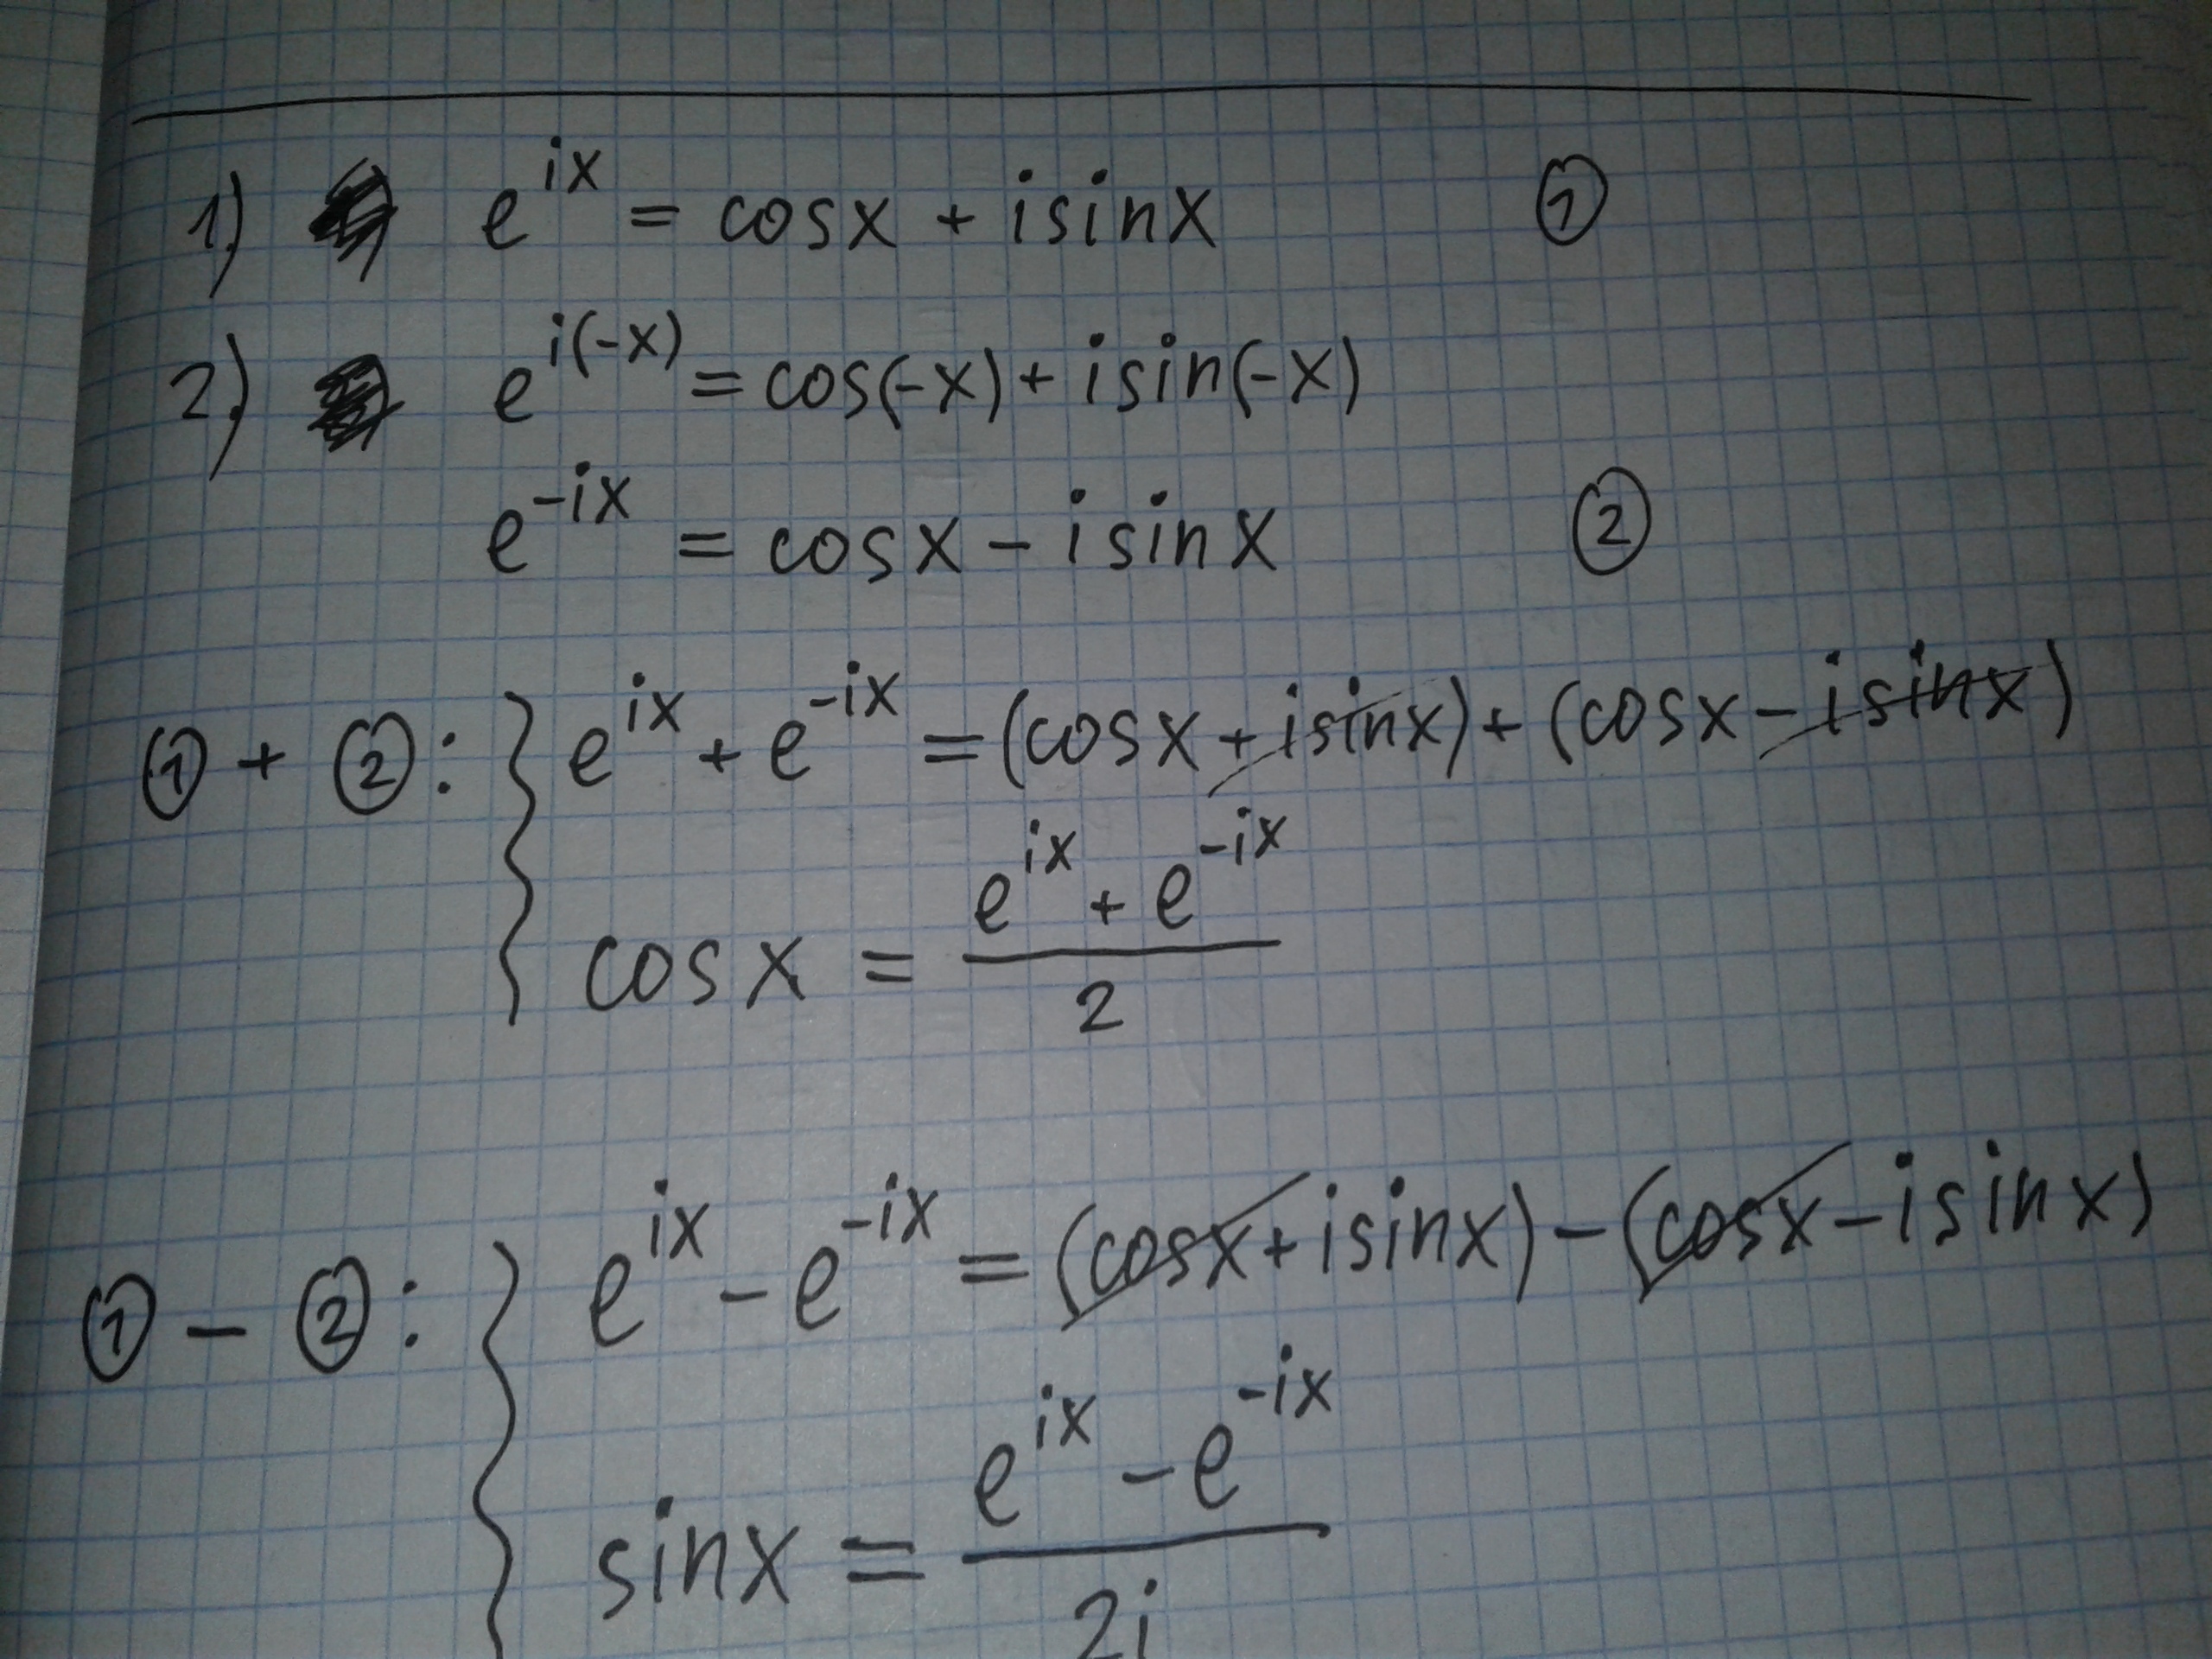 1) e^{ix} = cosx + isinx ①
2) e^{i(-x)} = cos(-x) + isin(-x)
e^{-ix} = cosx - isinx ②
① + ②: e^{ix} + e^{-ix} = (cosx + isinx) + (cosx - isinx)
cosx = \frac{e^{ix} + e^{-ix}}{2}
① - ②: e^{ix} - e^{-ix} = (cosx + isinx) - (cosx - isinx)
sinx = \frac{e^{ix} - e^{-ix}}{2i}